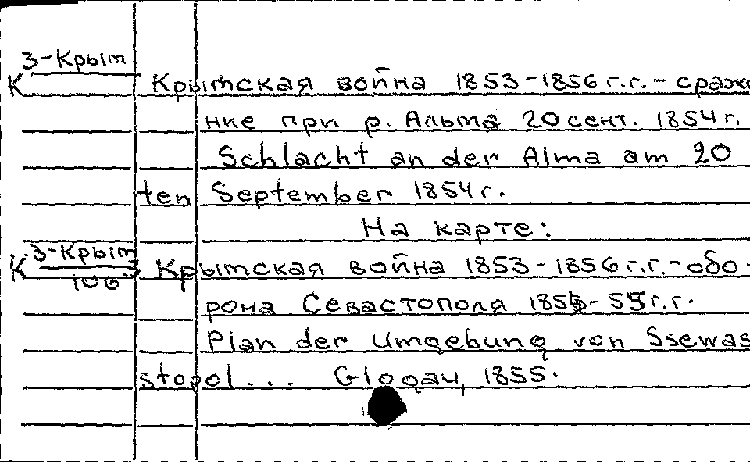 3-Крым
К Крымская война 1853-1856 г.г. - сраже
ние при р. Альма 20 сент. 1854 г.
Schlacht an der Alma am 20
ten September 1854 г.
На карте:
3-Крым
К Крымская война 1853-1856 г.г. - обо-
106
рона Севастополя 1854-55 г.г.
Plan der Umgebung von Ssewas
stopol... Glogau, 1855.